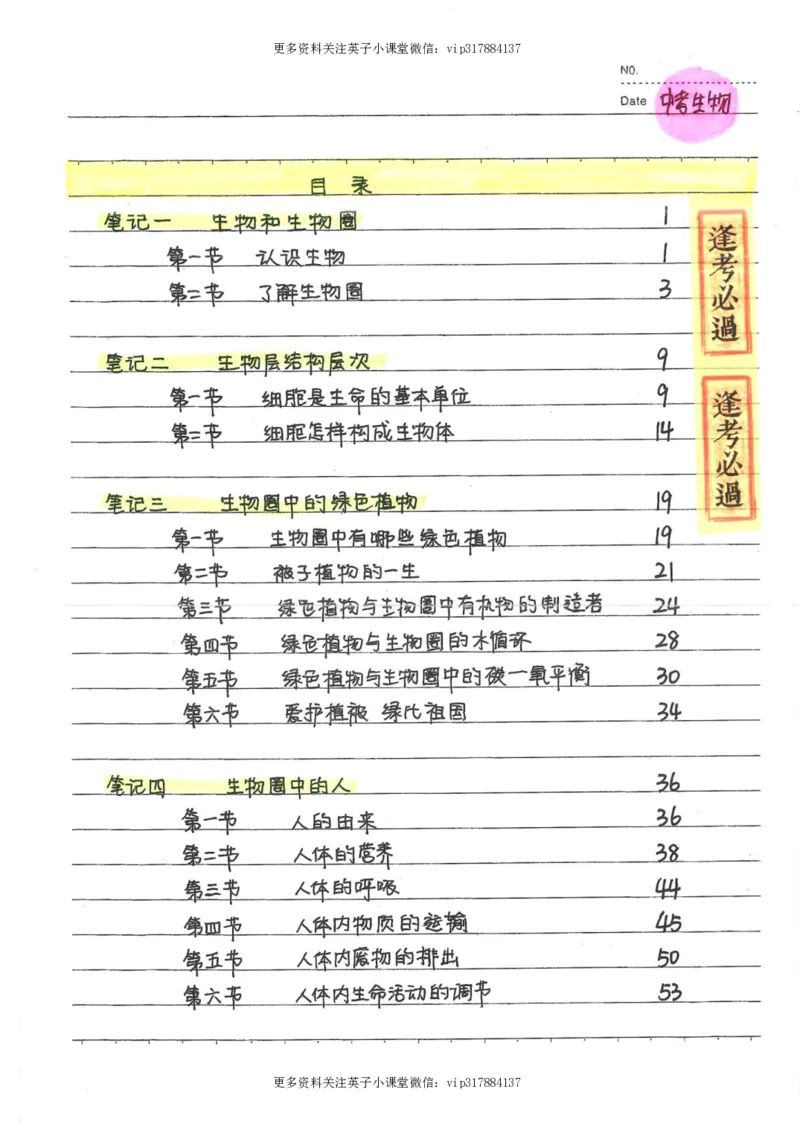 更多资料关注英子小课堂微信：vip317884137
NO.
Date 中考生物
目录
笔记一 生物和生物圈 1
第一节 认识生物 1
第二节 了解生物圈 3
逢考必過
笔记二 生物层结构层次 9
第一节 细胞是生命的基本单位 9
第二节 细胞怎样构成生物体 14
逢考必過
笔记三 生物圈中的绿色植物 19
第一节 生物圈中有哪些绿色植物 19
第二节 被子植物的一生 21
第三节 绿色植物与生物圈中有机物的制造者 24
第四节 绿色植物与生物圈的水循环 28
第五节 绿色植物与生物圈中的碳一氧平衡 30
第六节 爱护植被 绿化祖国 34
笔记四 生物圈中的人 36
第一节 人的由来 36
第二节 人体的营养 38
第三节 人体的呼吸 44
第四节 人体内物质的运输 45
第五节 人体内废物的排出 50
第六节 人体内生命活动的调节 53
更多资料关注英子小课堂微信：vip317884137